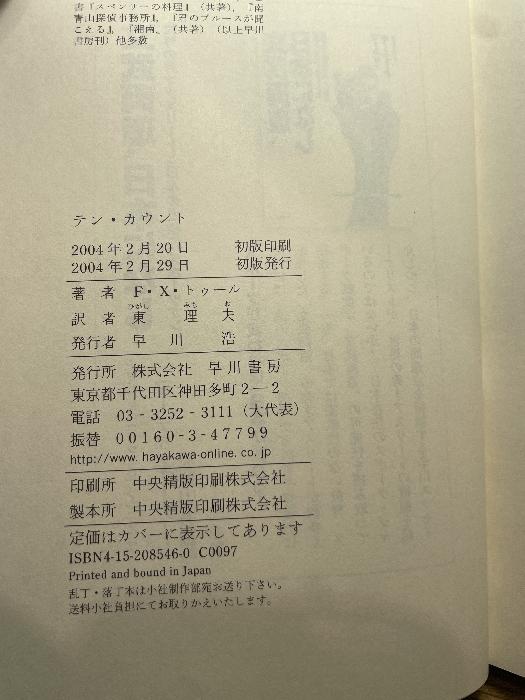 書『スペンサーの料理』(共著)、『南
青山探偵事務所』、『君のブルースが聞
こえる』、『湘南』(共著)(以上早川
書房刊)他多数
テン・カウント
2004年2月20日 初版印刷
2004年2月29日 初版発行
著者 F・X・トゥール
ひがし みち お
訳者 東 理夫
発行者 早川 浩
発行所 株式会社 早川書房
東京都千代田区神田多町2-2
電話 03-3252-3111(大代表)
振替 00160-3-47799
http://www.hayakawa-online.co.jp
印刷所 中央精版印刷株式会社
製本所 中央精版印刷株式会社
定価はカバーに表示してあります
ISBN4-15-208546-0 C0097
Printed and bound in Japan
乱丁・落丁本は小社制作部宛お送り下さい。
送料小社負担にてお取りかえいたします。